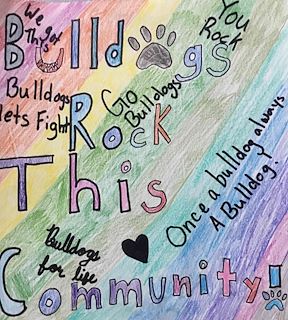 We got
This
You
Rock
Bulldogs
Bulldogs
lets Fight
Go
Bulldogs
Rock
This
Once a bulldog always
A Bulldog.
Bulldogs
for life
Community!